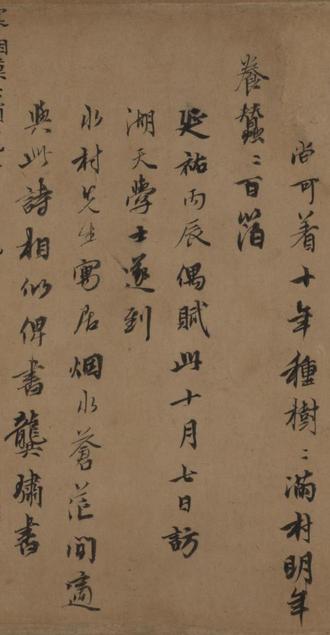 尚可着十年種樹〻滿村明年
養蠶〻百箔
延祐丙辰偶賦此十月七日訪
湖天學士遂到
水村先生寓居烟水蒼茫間適
與此詩相似俾書龔璛書